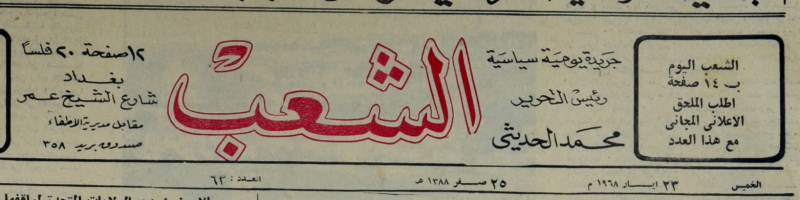 الشعب اليوم
ب ١٤ صفحة
اطلب الملحق
الاعلاني المجاني
مع هذا العدد
جريدة يومية سياسية
رئيس التحرير
محمد الحديثي
الشعب
١٢ صفحة ٢٠ فلسا
بغداد
شارع الشيخ عمر
مقابل مديرية الاطفاء
صندوق بريد ٣٥٨
الخميس ٢٣ ايار ١٩٦٨ م ٢٥ صفر ١٣٨٨ هـ العدد : ٦٣